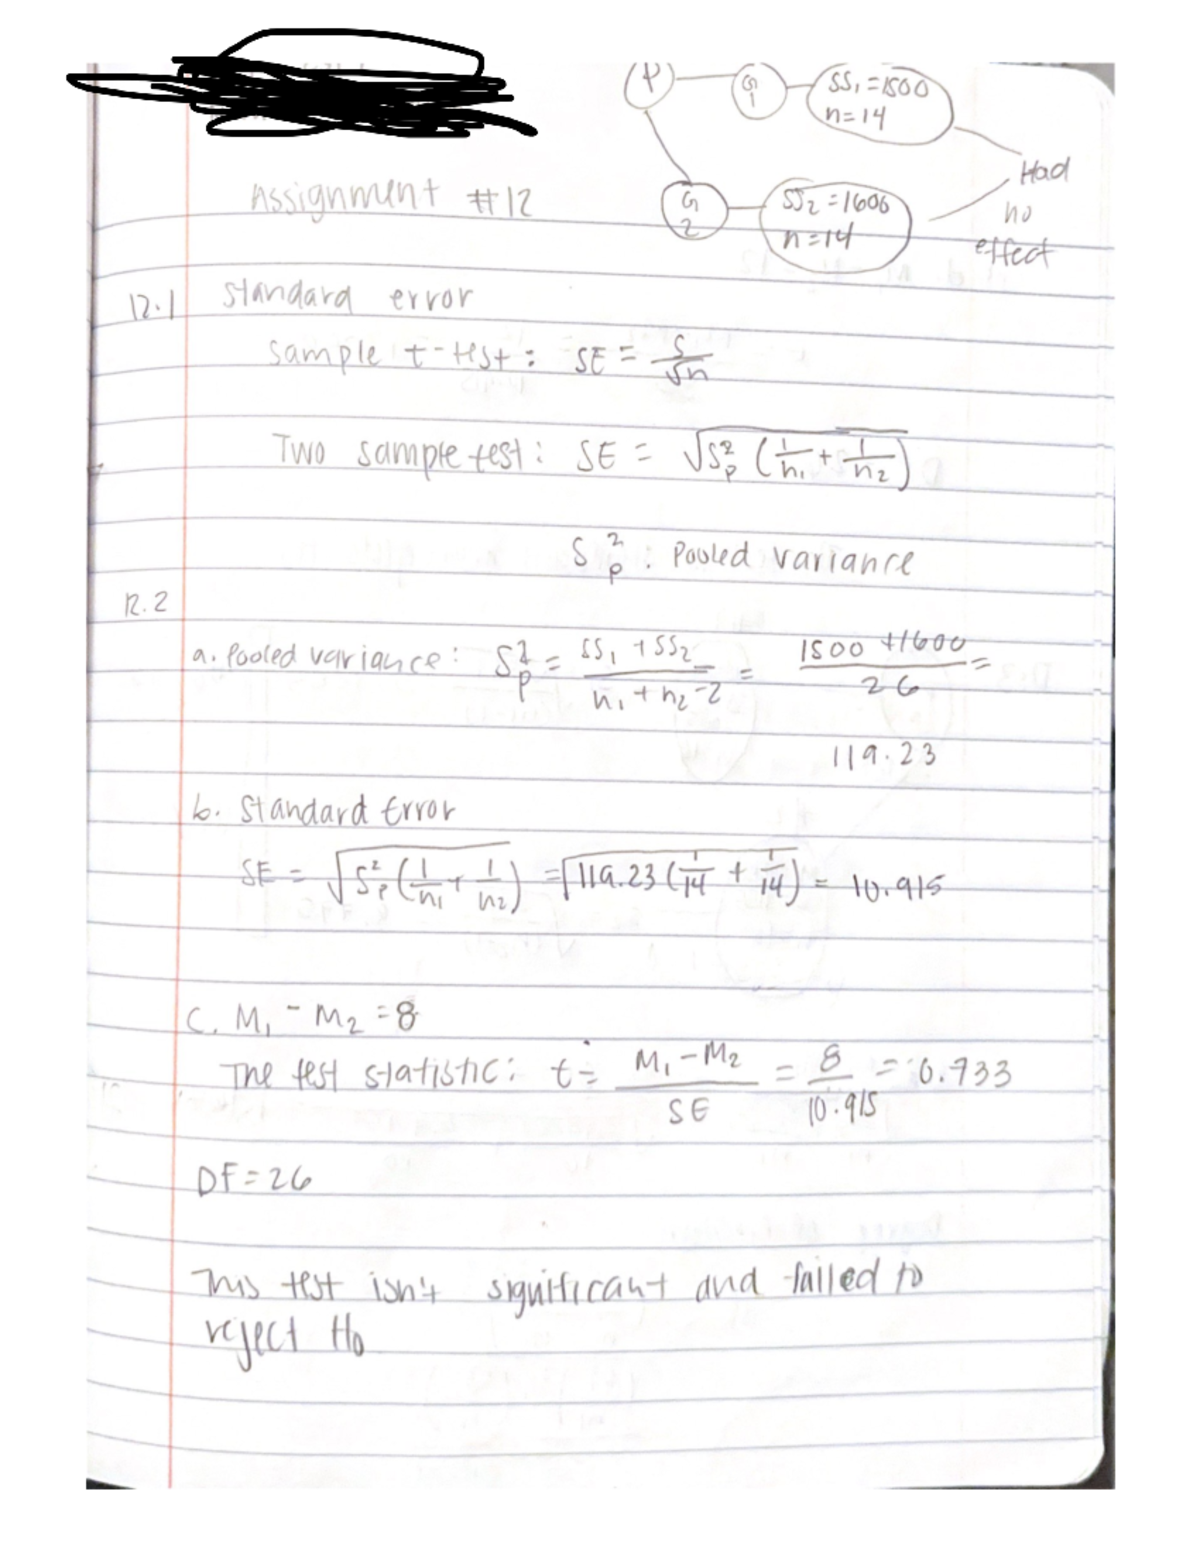 P G1 SS₁=1500
n=14
Had
no
effect
G2 SS₂=1600
n=14
Assignment #12
12.1 Standard error
Sample t-test: SE = S/√n
Two sample test: SE = √S²p (1/n₁ + 1/n₂)
S²p : Pooled variance
12.2
a. Pooled variance: S²p = SS₁ + SS₂ / n₁ + n₂ - 2 = 1500 + 1600 / 26 =
119.23
b. Standard Error
SE = √S²p (1/n₁ + 1/n₂) = √119.23 (1/14 + 1/14) = 10.915
C. M₁ - M₂ = 8
The test statistic: t = M₁ - M₂ / SE = 8 / 10.915 = 0.733
DF = 26
This test isn't significant and failed to
reject H₀